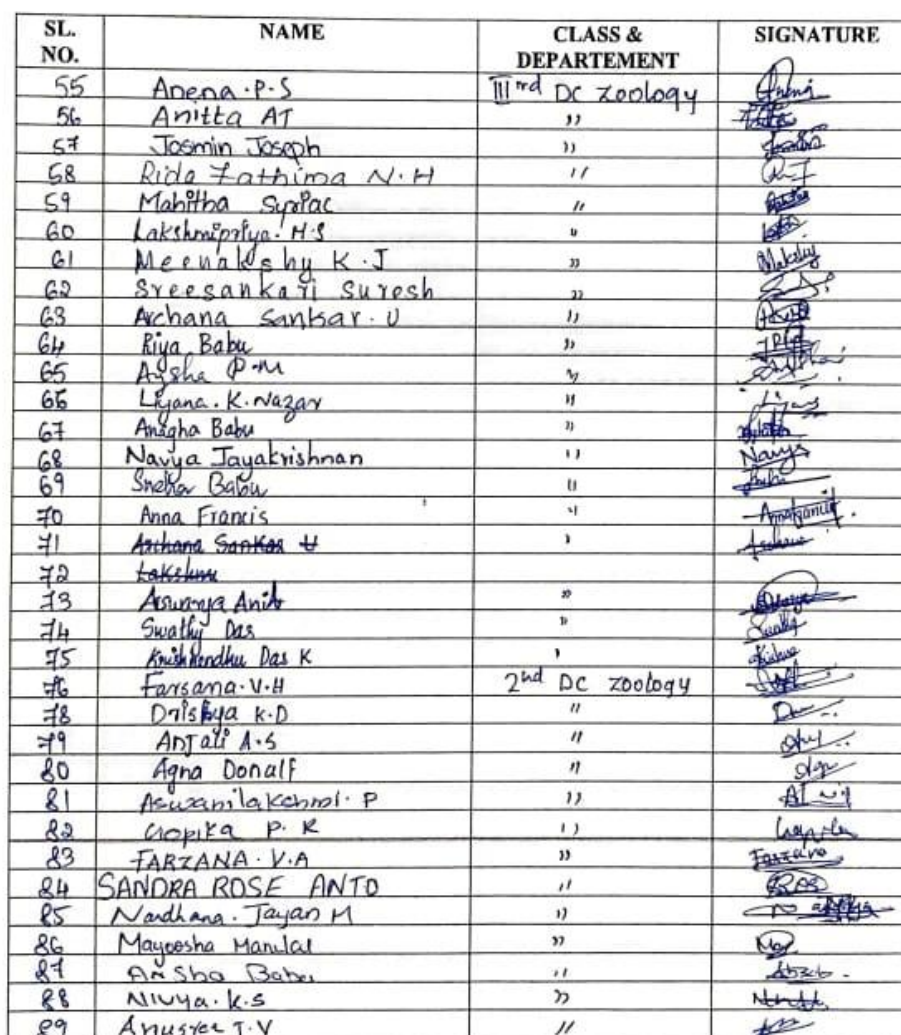 SL. NO. NAME CLASS & DEPARTEMENT SIGNATURE
55 Anena.P.S IIIrd DC Zoology
56 Anitta AT "
57 Josmin Joseph "
58 Rida Fathima N.H "
59 Mahitha Syriac "
60 Lakshmipriya.H.S "
61 Meenakshy K.J "
62 Sreesankari Suresh "
63 Archana Sankar.U "
64 Riya Babu "
65 Aysha P.M "
66 Liyana.K.Nazar "
67 Anagha Babu "
68 Navya Jayakrishnan " Navya
69 Sneha Babu "
70 Anna Francis " Annafrancis.
71 Archana Sankar U "
72 Lakshmi
73 Aswanya Anil "
74 Swathy Das "
75 Krishnendhu Das K "
76 Farsana.V.H 2nd DC Zoology
78 Drishya K.D "
79 Anjali A.S "
80 Agna Donalf "
81 Aswanilakshmi.P "
82 Gopika P.R "
83 FARZANA.V.A " Farzana
84 SANDRA ROSE ANTO "
85 Nandhana.Jayan M "
86 Mayoosha Manilal "
87 Ansha Babu "
88 Nivya.K.S "
89 Anusree T.V "